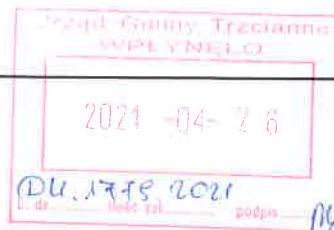 Urząd Gminy Trzcianne
WPŁYNĘŁO
2021 -04- 26
DU. 1775 2021
L. dz. ilość zał. podpis